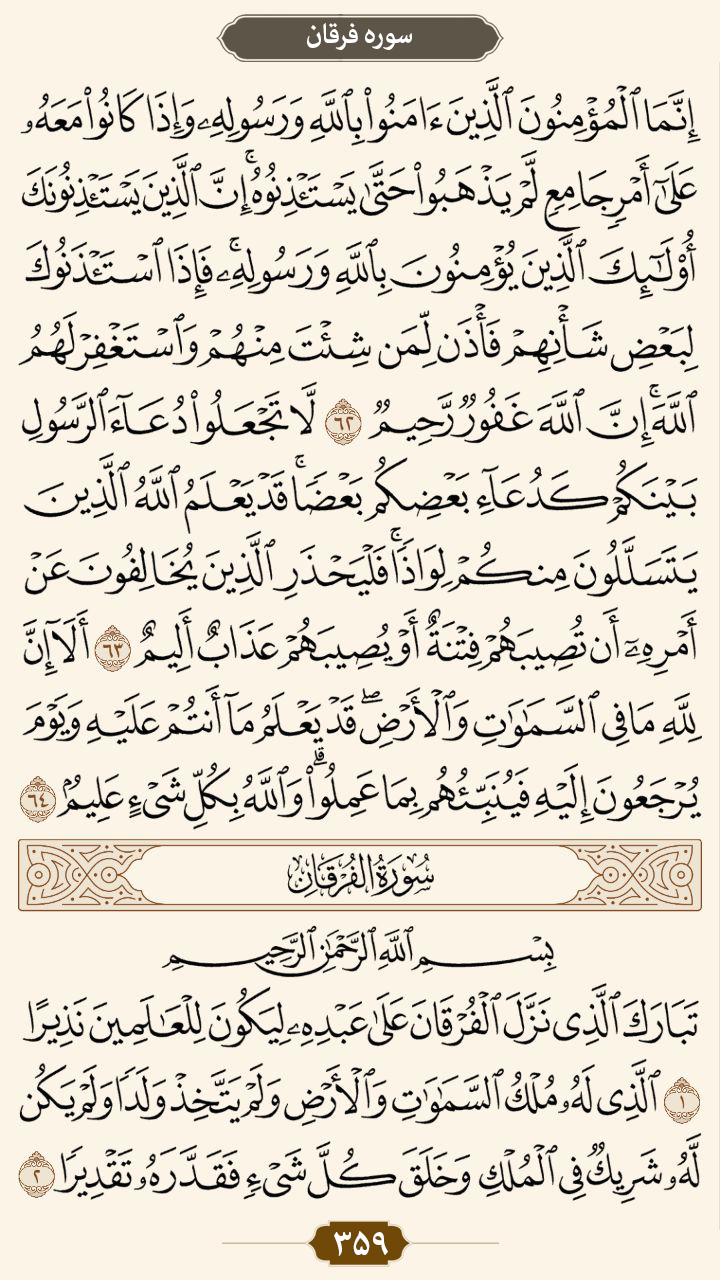 سوره فرقان
إِنَّمَا ٱلْمُؤْمِنُونَ ٱلَّذِينَ ءَامَنُوا۟ بِٱللَّهِ وَرَسُولِهِۦ وَإِذَا كَانُوا۟ مَعَهُۥ
عَلَىٰٓ أَمْرٍ جَامِعٍ لَّمْ يَذْهَبُوا۟ حَتَّىٰ يَسْتَـْٔذِنُوهُ ۚ إِنَّ ٱلَّذِينَ يَسْتَـْٔذِنُونَكَ
أُو۟لَـٰٓئِكَ ٱلَّذِينَ يُؤْمِنُونَ بِٱللَّهِ وَرَسُولِهِۦ ۚ فَإِذَا ٱسْتَـْٔذَنُوكَ
لِبَعْضِ شَأْنِهِمْ فَأْذَن لِّمَن شِئْتَ مِنْهُمْ وَٱسْتَغْفِرْ لَهُمُ
ٱللَّهَ ۚ إِنَّ ٱللَّهَ غَفُورٌ رَّحِيمٌ ٦٢ لَّا تَجْعَلُوا۟ دُعَآءَ ٱلرَّسُولِ
بَيْنَكُمْ كَدُعَآءِ بَعْضِكُم بَعْضًا ۚ قَدْ يَعْلَمُ ٱللَّهُ ٱلَّذِينَ
يَتَسَلَّلُونَ مِنكُمْ لِوَاذًا ۚ فَلْيَحْذَرِ ٱلَّذِينَ يُخَالِفُونَ عَنْ
أَمْرِهِۦٓ أَن تُصِيبَهُمْ فِتْنَةٌ أَوْ يُصِيبَهُمْ عَذَابٌ أَلِيمٌ ٦٣ أَلَآ إِنَّ
لِلَّهِ مَا فِى ٱلسَّمَـٰوَٰتِ وَٱلْأَرْضِ ۖ قَدْ يَعْلَمُ مَآ أَنتُمْ عَلَيْهِ وَيَوْمَ
يُرْجَعُونَ إِلَيْهِ فَيُنَبِّئُهُم بِمَا عَمِلُوا۟ ۗ وَٱللَّهُ بِكُلِّ شَىْءٍ عَلِيمٌۢ ٦٤
سُورَةُ الفُرْقَانِ
بِسْمِ ٱللَّهِ ٱلرَّحْمَـٰنِ ٱلرَّحِيمِ
تَبَارَكَ ٱلَّذِى نَزَّلَ ٱلْفُرْقَانَ عَلَىٰ عَبْدِهِۦ لِيَكُونَ لِلْعَـٰلَمِينَ نَذِيرًا
١ ٱلَّذِى لَهُۥ مُلْكُ ٱلسَّمَـٰوَٰتِ وَٱلْأَرْضِ وَلَمْ يَتَّخِذْ وَلَدًا وَلَمْ يَكُن
لَّهُۥ شَرِيكٌ فِى ٱلْمُلْكِ وَخَلَقَ كُلَّ شَىْءٍ فَقَدَّرَهُۥ تَقْدِيرًا ٢
۳۵۹